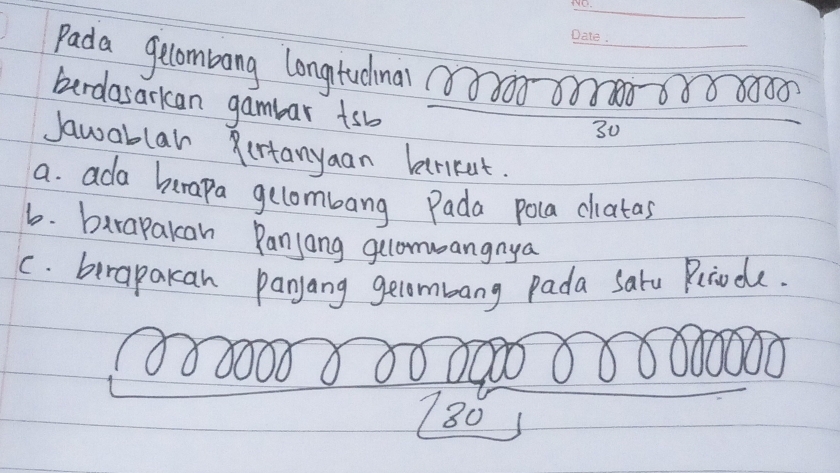 No.
Date .
Pada gelombang longitudinal
berdasarkan gambar tsb
30
Jawablah Pertanyaan berikut.
a. ada berapa gelombang Pada pola diatas
b. berapakah Panjang gelombangnya
c. berapakah panjang gelombang pada satu Periode.
30